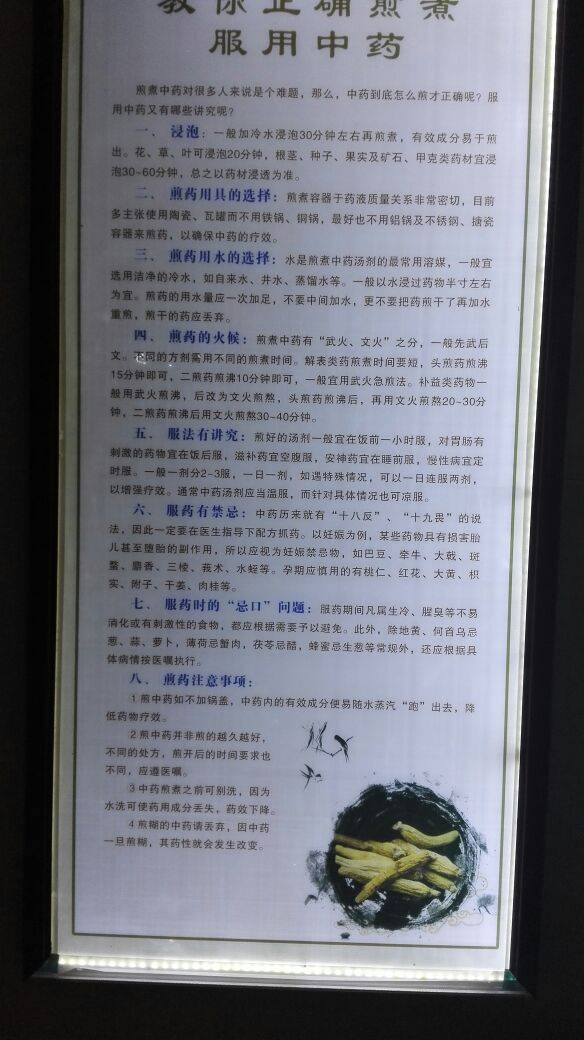 教你正确煎煮
服用中药
煎煮中药对很多人来说是个难题，那么，中药到底怎么煎才正确呢？服
用中药又有哪些讲究呢？
一、浸泡：一般加冷水浸泡30分钟左右再煎煮，有效成分易于煎
出。花、草、叶可浸泡20分钟，根茎、种子、果实及矿石、甲壳类药材宜浸
泡30~60分钟，总之以药材浸透为准。
二、煎药用具的选择：煎煮容器于药液质量关系非常密切，目前
多主张使用陶瓷、瓦罐而不用铁锅、铜锅，最好也不用铝锅及不锈钢、搪瓷
容器来煎药，以确保中药的疗效。
三、煎药用水的选择：水是煎煮中药汤剂的最常用溶媒，一般宜
选用洁净的冷水，如自来水、井水、蒸馏水等。一般以水浸过药物半寸左右
为宜。煎药的用水量应一次加足，不要中间加水，更不要把药煎干了再加水
重煎，煎干的药应丢弃。
四、煎药的火候：煎煮中药有“武火、文火”之分，一般先武后
文。不同的方剂需用不同的煎煮时间。解表类药煎煮时间要短，头煎药煎沸
15分钟即可，二煎药煎沸10分钟即可，一般宜用武火急煎法。补益类药物一
般用武火煎沸，后改为文火煎熬，头煎药煎沸后，再用文火煎熬20~30分
钟，二煎药煎沸后用文火煎熬30~40分钟。
五、服法有讲究：煎好的汤剂一般宜在饭前一小时服，对胃肠有
刺激的药物宜在饭后服，滋补药宜空腹服，安神药宜在睡前服，慢性病宜定
时服。一般一剂分2~3服，一日一剂，如遇特殊情况，可以一日连服两剂，
以增强疗效。通常中药汤剂应当温服，而针对具体情况也可凉服。
六、服药有禁忌：中药历来就有“十八反”、“十九畏”的说
法，因此一定要在医生指导下配方抓药。以妊娠为例，某些药物具有损害胎
儿甚至堕胎的副作用，所以应视为妊娠禁忌物，如巴豆、牵牛、大戟、斑
蝥、麝香、三棱、莪术、水蛭等。孕期应慎用的有桃仁、红花、大黄、枳
实、附子、干姜、肉桂等。
七、服药时的“忌口”问题：服药期间凡属生冷、腥臭等不易
消化或有刺激性的食物，都应根据需要予以避免。此外，除地黄、何首乌忌
葱、蒜、萝卜，薄荷忌蟹肉，茯苓忌醋，蜂蜜忌生葱等常规外，还应根据具
体病情按医嘱执行。
八、煎药注意事项：
1煎中药如不加锅盖，中药内的有效成分便易随水蒸汽“跑”出去，降
低药物疗效。
2煎中药并非煎的越久越好，
不同的处方，煎开后的时间要求也
不同，应遵医嘱。
3中药煎煮之前可别洗，因为
水洗可使药用成分丢失，药效下降。
4煎糊的中药请丢弃，因中药
一旦煎糊，其药性就会发生改变。